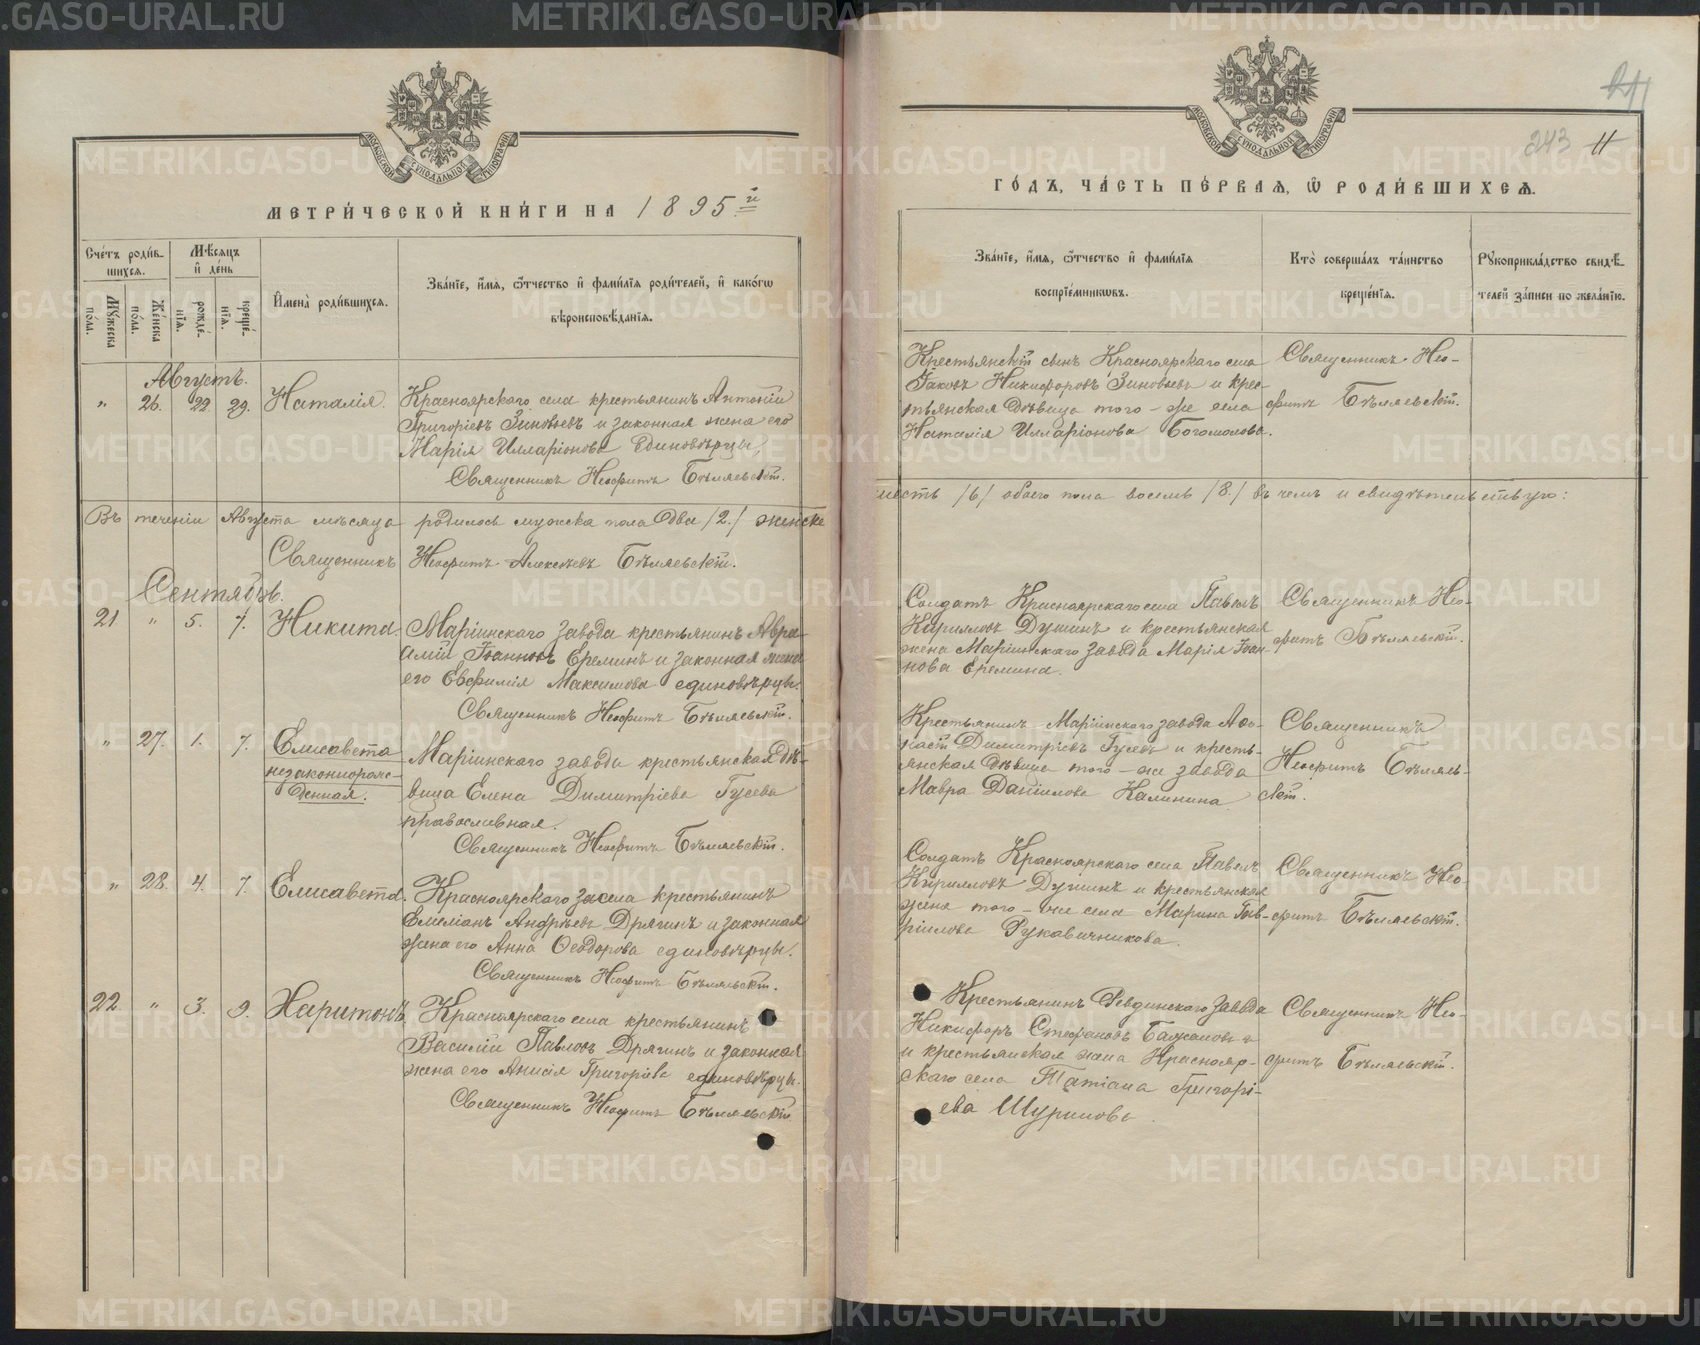 МЕТРИ́ЧЕСКОЙ КНИ́ГИ НА 1895й
Счéтъ роди́в-
шихся.
Мѣ́сяцъ
и҆ дéнь
Мꙋжеска
пóла.
Жéнска
пóла.
рождé-
нїя.
крещé-
нїя.
И҆мена̀ роди́вшихся.
Звáнїе, и҆́мя, ѻ҆́тчество и҆ фами́лїя роди́телей, и҆ какóгѡ
вѣроисповѣ́данїя.
Августъ.
" 26. 22. 29. Наталія.
Красноярскаго села крестьянинъ Антоній
Григоріевъ Зиновьевъ и законная жена его
Марія Илларіонова единовѣрцы,
Священникъ Неофитъ Бѣляевскій.
Въ теченіи Августа мѣсяца родилось мужска пола два /2./ женска
Священникъ Неофитъ Алексѣевъ Бѣляевскій.
Сентябрь.
21 " 5. 7. Никита.
Маріинскаго завода крестьянинъ Авра-
амій Іоанновъ Ереминъ и законная жена
его Евфимія Максимова единовѣрцы.
Священникъ Неофитъ Бѣляевскій.
" 27. 1. 7. Елисавета
незаконнорож-
денная.
Маріинскаго завода крестьянская дѣ-
вица Елена Димитріева Гусева
православная.
Священникъ Неофитъ Бѣляевскій.
" 28. 4. 7. Елисавета.
Красноярскаго села крестьянинъ
Емеліанъ Андреевъ Дрягинъ и законная
жена его Анна Ѳеодорова единовѣрцы.
Священникъ Неофитъ Бѣляевскій.
22 " 3. 9. Харитонъ
Красноярскаго села крестьянинъ
Василій Павловъ Дрягинъ и законная
жена его Анисія Григоріева единовѣрцы.
Священникъ Неофитъ Бѣляевскій
243 11
ГÓДЪ, ЧÁСТЬ ПÉРВАЯ, Ѡ҆ РОДИ́ВШИХСЯ.
Звáнїе, и҆́мя, ѻ҆́тчество и҆ фами́лїя
воспрїéмникѡвъ.
Ктò совершáлъ тáинство
крещéнїя.
Рꙋкоприклáдство свидѣ́-
телей зáписи по желáнїю.
Крестьянскій сынъ Красноярскаго села
Іаковъ Никифоровъ Зиновьевъ и крес-
тьянская дѣвица того-же села
Наталія Илларіонова Богомолова.
Священникъ Нео-
фитъ Бѣляевскій.
шесть /6/ обоего пола восемь /8./ въ чемъ и свидѣтельствую:
Солдатъ Красноярскаго села Павелъ
Кирилловъ Душинъ и крестьянская
жена Маріинскаго завода Марія Іоан
нова Еремина.
Священникъ Нео-
фитъ Бѣляевскій.
Крестьянинъ Маріинскаго завода
Димитріевъ Гусевъ и кресть-
янская дѣвица того-же завода
Мавра Даніилова Калинина.
Священникъ
Неофитъ Бѣляев-
скій.
Солдатъ Красноярскаго села Павелъ
Кирилловъ Душинъ и крестьянская
жена того-же села Марина Гав-
ріилова Рукавичникова.
Священникъ Нео-
фитъ Бѣляевскій.
Крестьянинъ Ревдинскаго завода
Никифоръ Стефановъ
и крестьянская жена Краснояр-
скаго села Татіана Григорі-
ева Шурипова.
Священникъ Нео-
фитъ Бѣляевскій.
METRIKI.GASO-URAL.RU